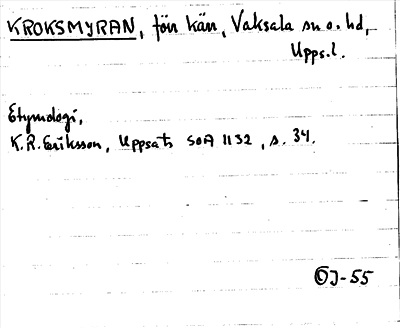 KROKSMYRAN, förr kärr, Vaksala sn o. hd,
Uppl.
Etymologi,
K.R. Eriksson, Uppsats SOA 1132, s. 34.
OJ-55